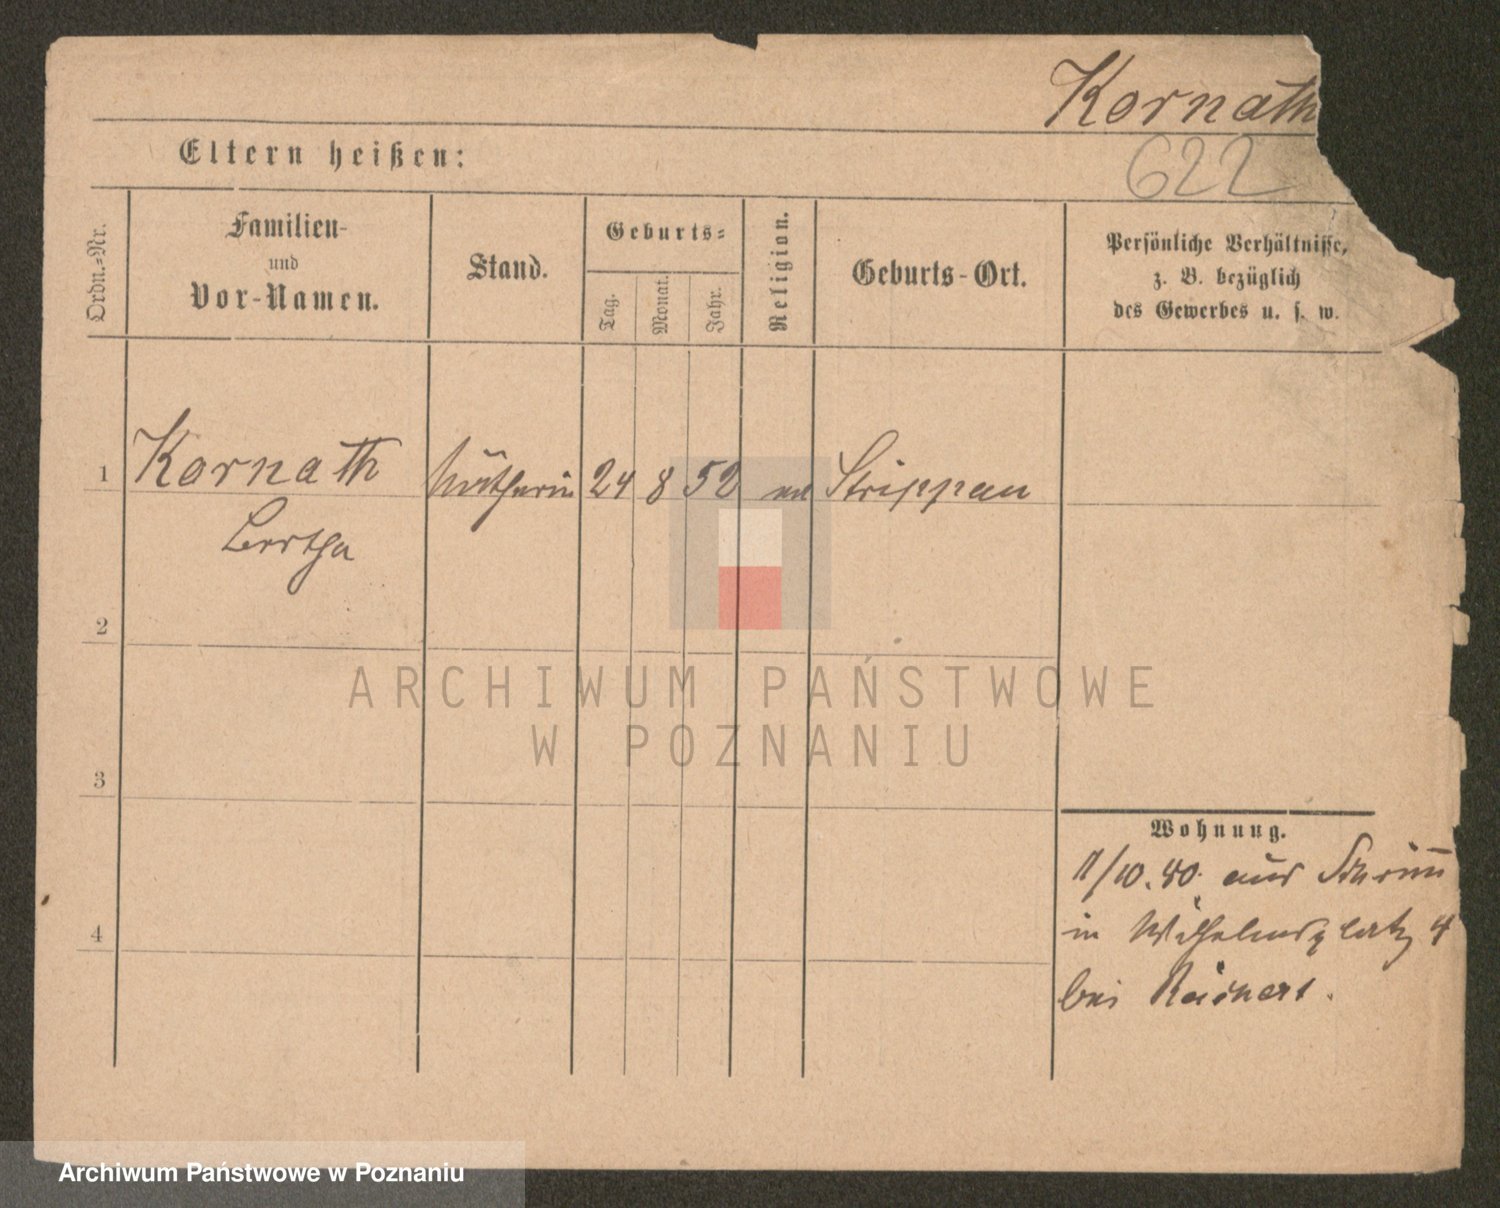 Kornath
622
Eltern heißen:
Ordn.-Nr.
Familien-
und
Vor-Namen.
Stand.
Geburts-
Tag.
Monat.
Jahr.
Religion.
Geburts-Ort.
Persönliche Verhältnisse,
z. B. bezüglich
des Gewerbes u. s. w.
1 Kornath 24 8 52 Strippau
Bertha
2
ARCHIWUM PAŃSTWOWE
W POZNANIU
3
Wohnung.
11/10.80. aus Schrimm
in Wilhelmsplatz 4
4
bei
Archiwum Państwowe w Poznaniu